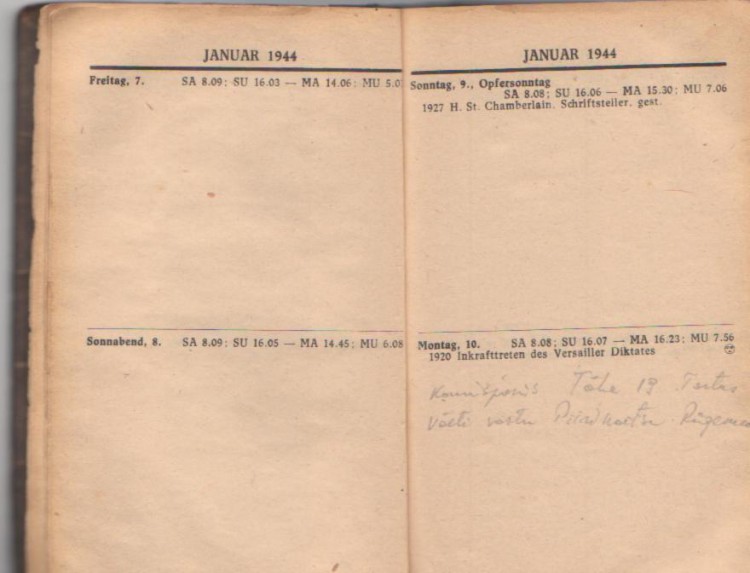 JANUAR 1944
Freitag, 7. SA 8.09; SU 16.03 — MA 14.06; MU 5.0
Sonnabend, 8. SA 8.09; SU 16.05 — MA 14.45; MU 6.08
JANUAR 1944
Sonntag, 9., Opfersonntag
SA 8.08; SU 16.06 — MA 15.30; MU 7.06
1927 H. St. Chamberlain, Schriftsteller, gest.
Montag, 10. SA 8.08; SU 16.07 — MA 16.23; MU 7.56
1920 Inkrafttreten des Versailler Diktates
Tähe 19 Tartus
võeti vastu